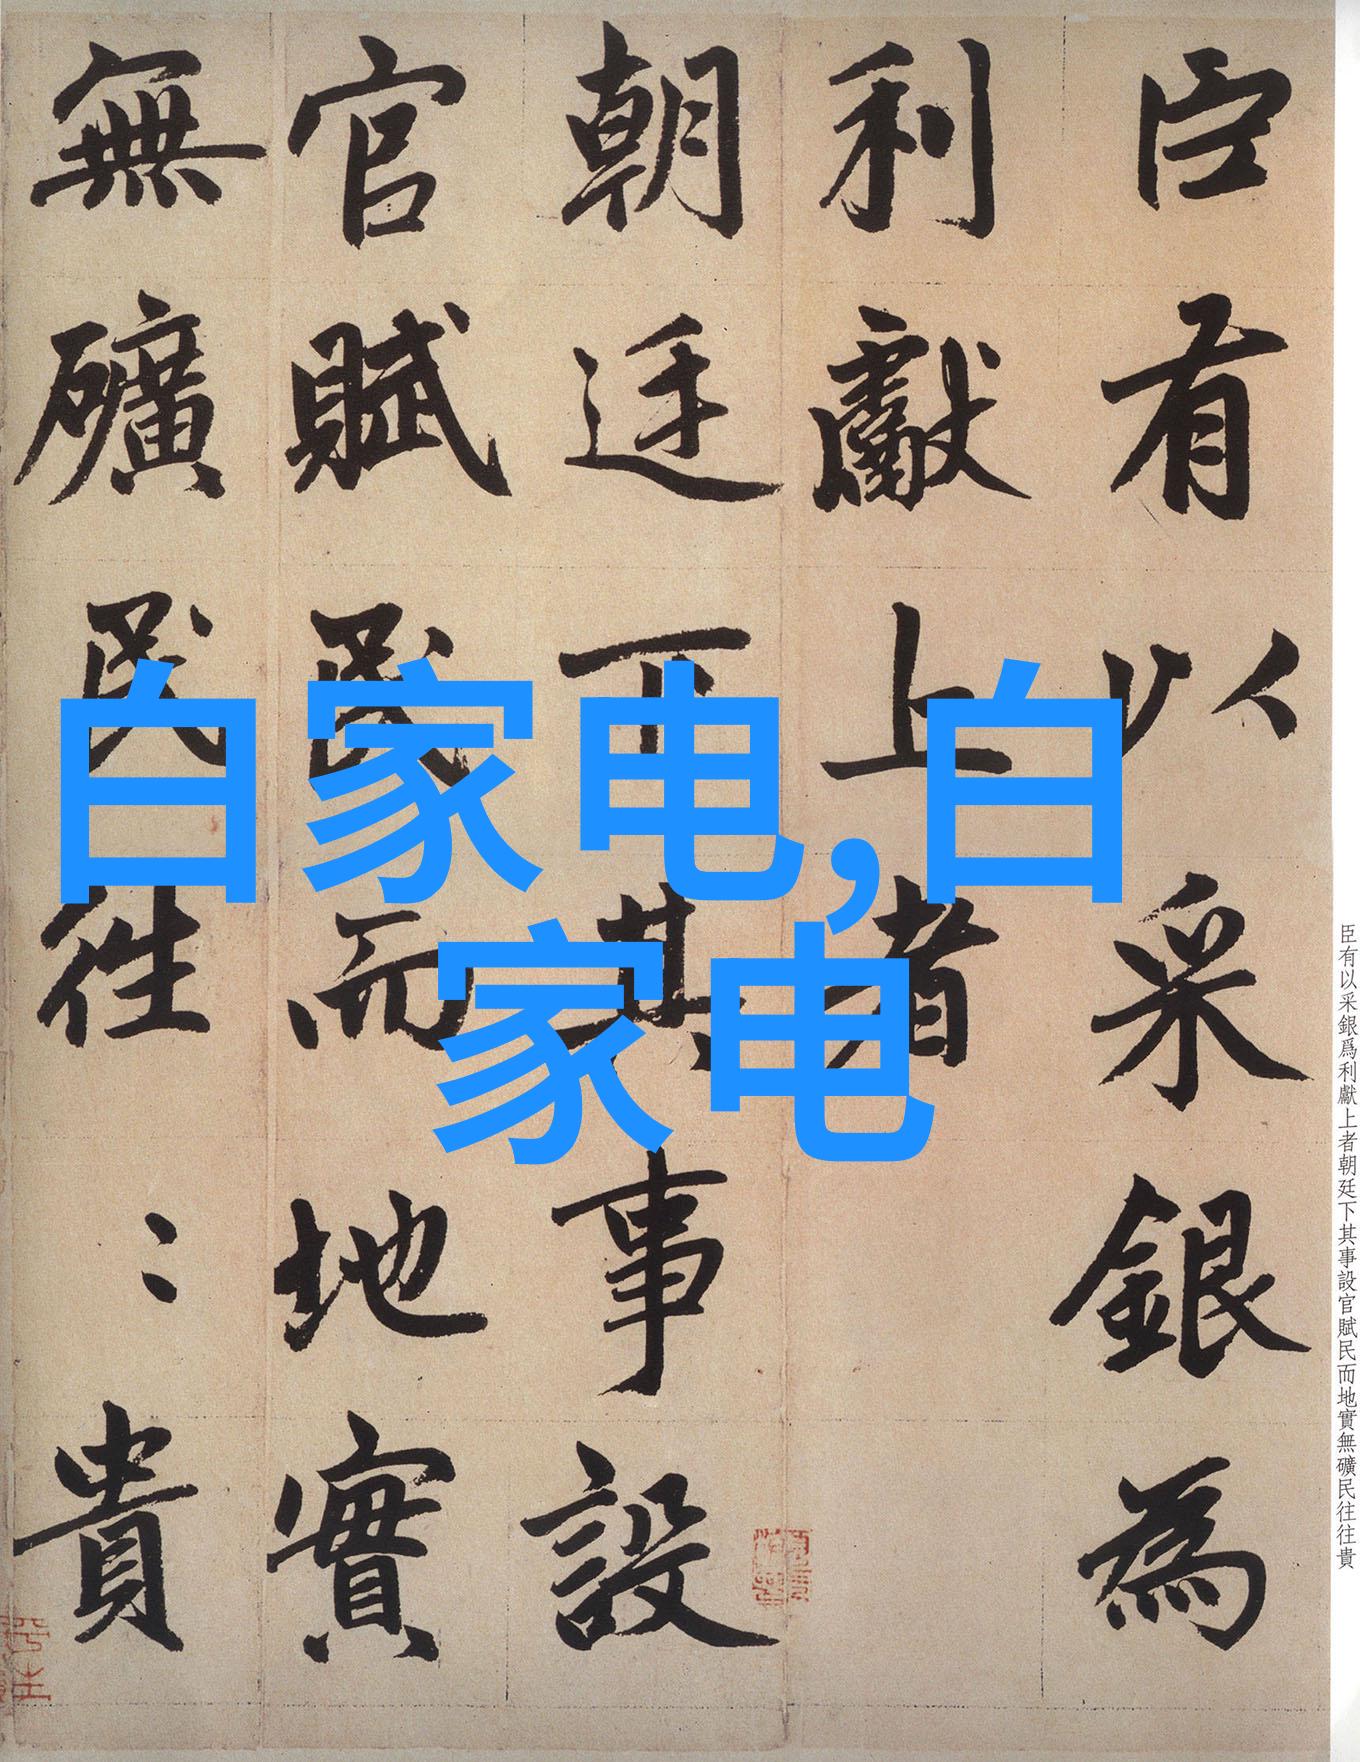 臣有以采銀為
利獻上者
朝廷下其事設
官賦民而地實
無礦民往〻貴
白家电,白
家电
臣有以采銀爲利獻上者朝廷下其事設官賦民而地實無礦民往往貴